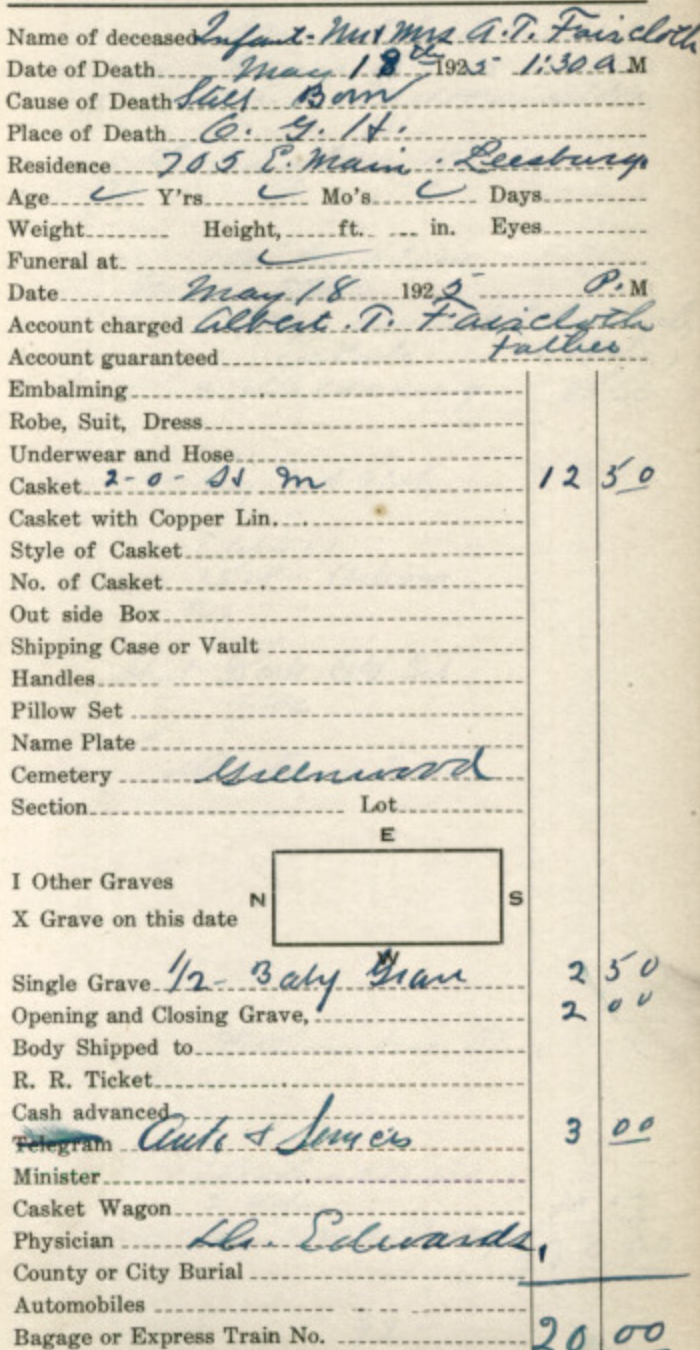 Name of deceased Infant - Mr & Mrs A.T. Faircloth
Date of Death May 18th 1925 1:30 A M
Cause of Death Still Born
Place of Death O. G. H.
Residence 705 E. Main. Leesburg
Age ✓ Y'rs ✓ Mo's ✓ Days
Weight Height, ft. in. Eyes
Funeral at ✓
Date May 18 1925 P. M
Account charged Albert. T. Faircloth
Account guaranteed Father
Embalming
Robe, Suit, Dress
Underwear and Hose
Casket 2-0- St M 12 50
Casket with Copper Lin.
Style of Casket
No. of Casket
Out side Box
Shipping Case or Vault
Handles
Pillow Set
Name Plate
Cemetery Greenwood
Section Lot
E
I Other Graves
N S
X Grave on this date
W
Single Grave 1/2 - Baby Grave 2 50
Opening and Closing Grave, 2 00
Body Shipped to
R. R. Ticket
Cash advanced
Telegram Auto & Services 3 00
Minister
Casket Wagon
Physician Dr. Edwards.
County or City Burial
Automobiles
Bagage or Express Train No. 20 00